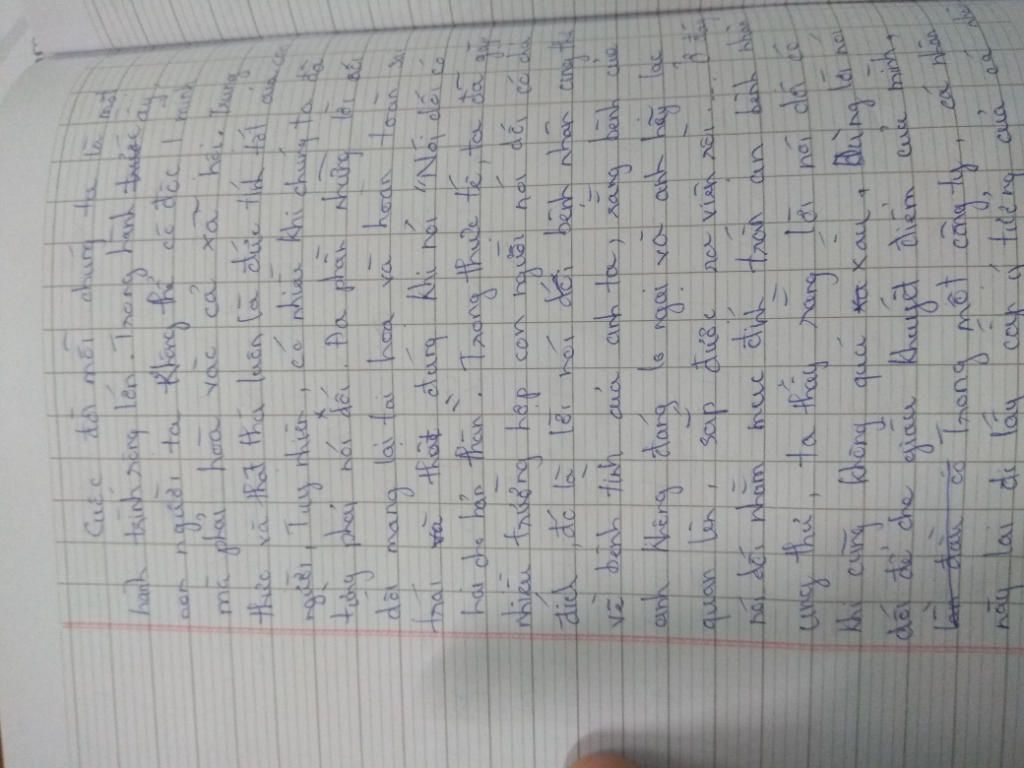 Cuộc đời mỗi chúng ta là một
hành trình rộng lớn. Trong hành trình ấy,
con người ta không thể cô độc 1 mình
mà phải hoà vào cả xã hội. Trung
thực và thật thà luôn là đức tính tốt của con
người. Tuy nhiên, có nhiều khi chúng ta đã
từng phải nói dối. Đa phần những lời nói
dối mang lại tai hoạ và hoàn toàn
trái và thật đúng khi nói "Nói dối có
hại cho bản thân". Trong thực tế, ta đã gặp
nhiều trường hợp con người nói dối có chủ
đích, đó là lời nói dối bệnh nhân ung thư
về bệnh tình của anh ta, rằng bệnh của
anh không đáng lo ngại và anh hãy lạc
quan lên, sắp được ra viện rồi... Ở đây,
nói dối nhằm mục đích trấn an bệnh nhân
ung thư, ta thấy rằng lời nói dối có
khi cũng không quá xa xấu, Dùng lời nói
dối để che giấu khuyết điểm của mình,
Trong một công ty, cá nhân
này lại đi lấy cắp ý tưởng của cá nhân